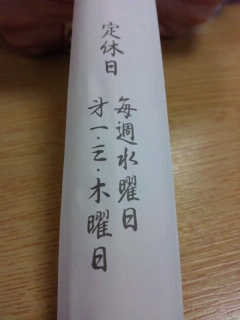 定休日
毎週水曜日
才一・三・木曜日